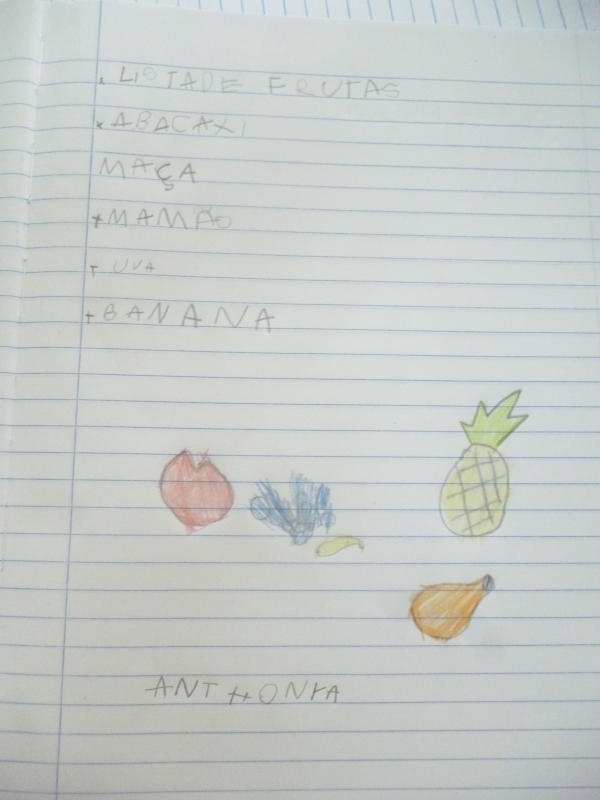 . LISTADE FRUTAS
x ABACAXI
MAÇA
+ MAMÃO
+ UVA
+ BANANA
ANTHONYA